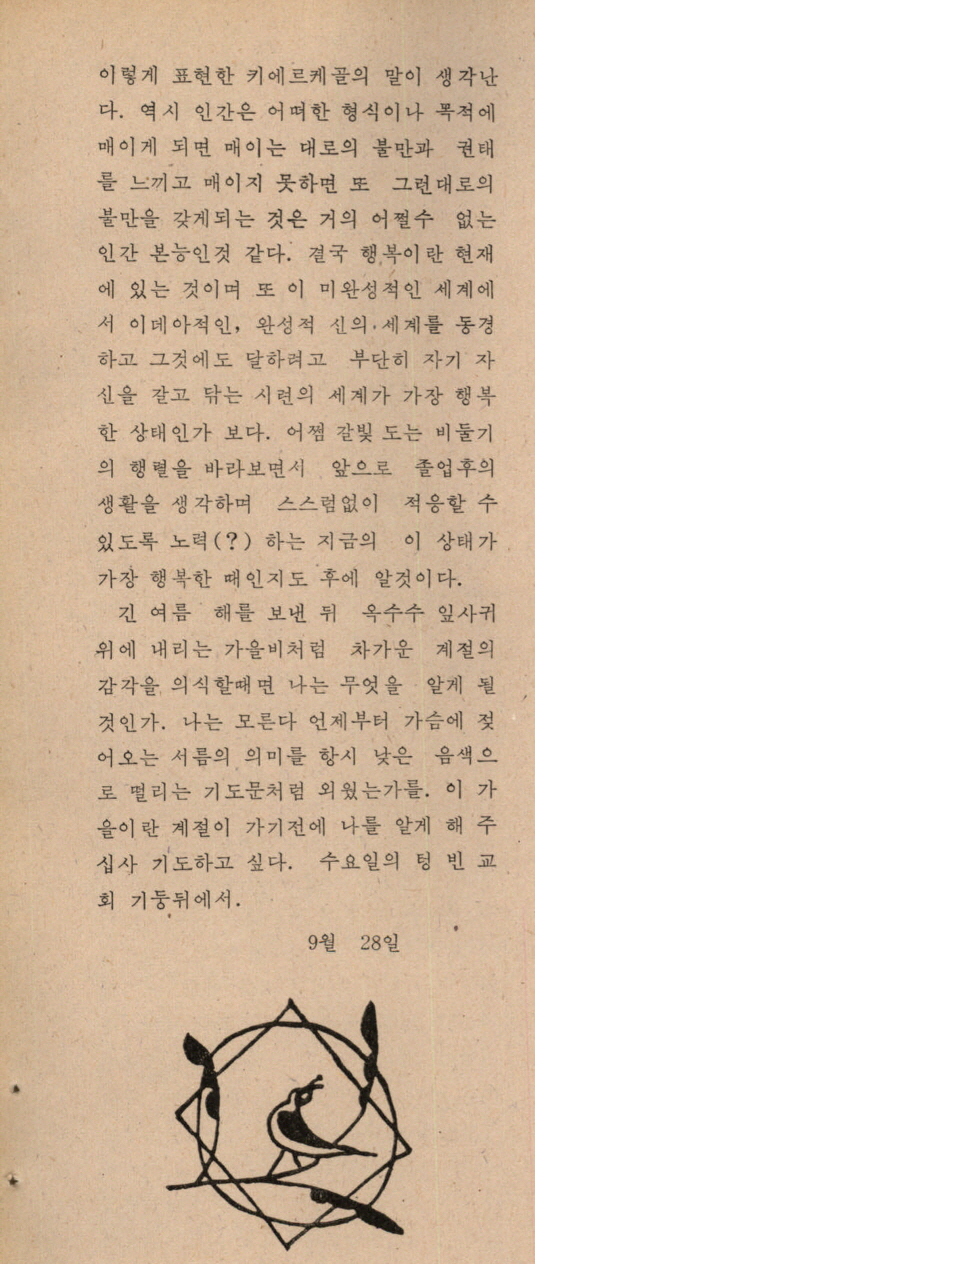 이렇게 표현한 키에르케골의 말이 생각난
다. 역시 인간은 어떠한 형식이나 목적에
매이게 되면 매이는 대로의 불만과 권태
를 느끼고 매이지 못하면 또 그런대로의
불만을 갖게되는 것은 거의 어쩔수 없는
인간 본능인것 같다. 결국 행복이란 현재
에 있는 것이며 또 이 미완성적인 세계에
서 이데아적인, 완성적 신의 세계를 동경
하고 그것에도 달하려고 부단히 자기 자
신을 갈고 닦는 시련의 세계가 가장 행복
한 상태인가 보다. 어쩜 갈빛 도는 비둘기
의 행렬을 바라보면서 앞으로 졸업후의
생활을 생각하며 스스럼없이 적응할 수
있도록 노력(?) 하는 지금의 이 상태가
가장 행복한 때인지도 후에 알것이다.
긴 여름 해를 보낸 뒤 옥수수 잎사귀
위에 내리는 가을비처럼 차가운 계절의
감각을 의식할때면 나는 무엇을 알게 될
것인가. 나는 모른다 언제부터 가슴에 젖
어오는 서름의 의미를 항시 낮은 음색으
로 떨리는 기도문처럼 외웠는가를. 이 가
을이란 계절이 가기전에 나를 알게 해 주
십사 기도하고 싶다. 수요일의 텅 빈 교
회 기둥뒤에서.
9월 28일